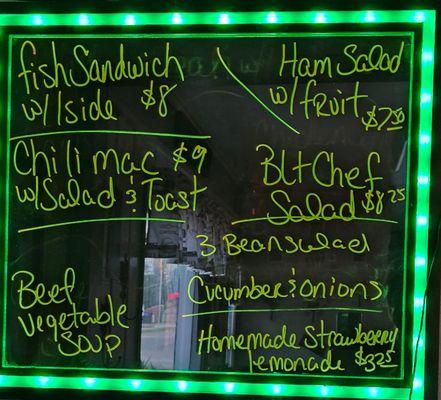 fish Sandwich
w/1side $8
Chili mac $9
w/Salad & Toast
Beef
vegetable
SOUP
Ham Salad
w/fruit
$7.50
Blt Chef
Salad $8.25
3 Bean salad
Cucumber & onions
Homemade Strawberry
lemonade $3.25